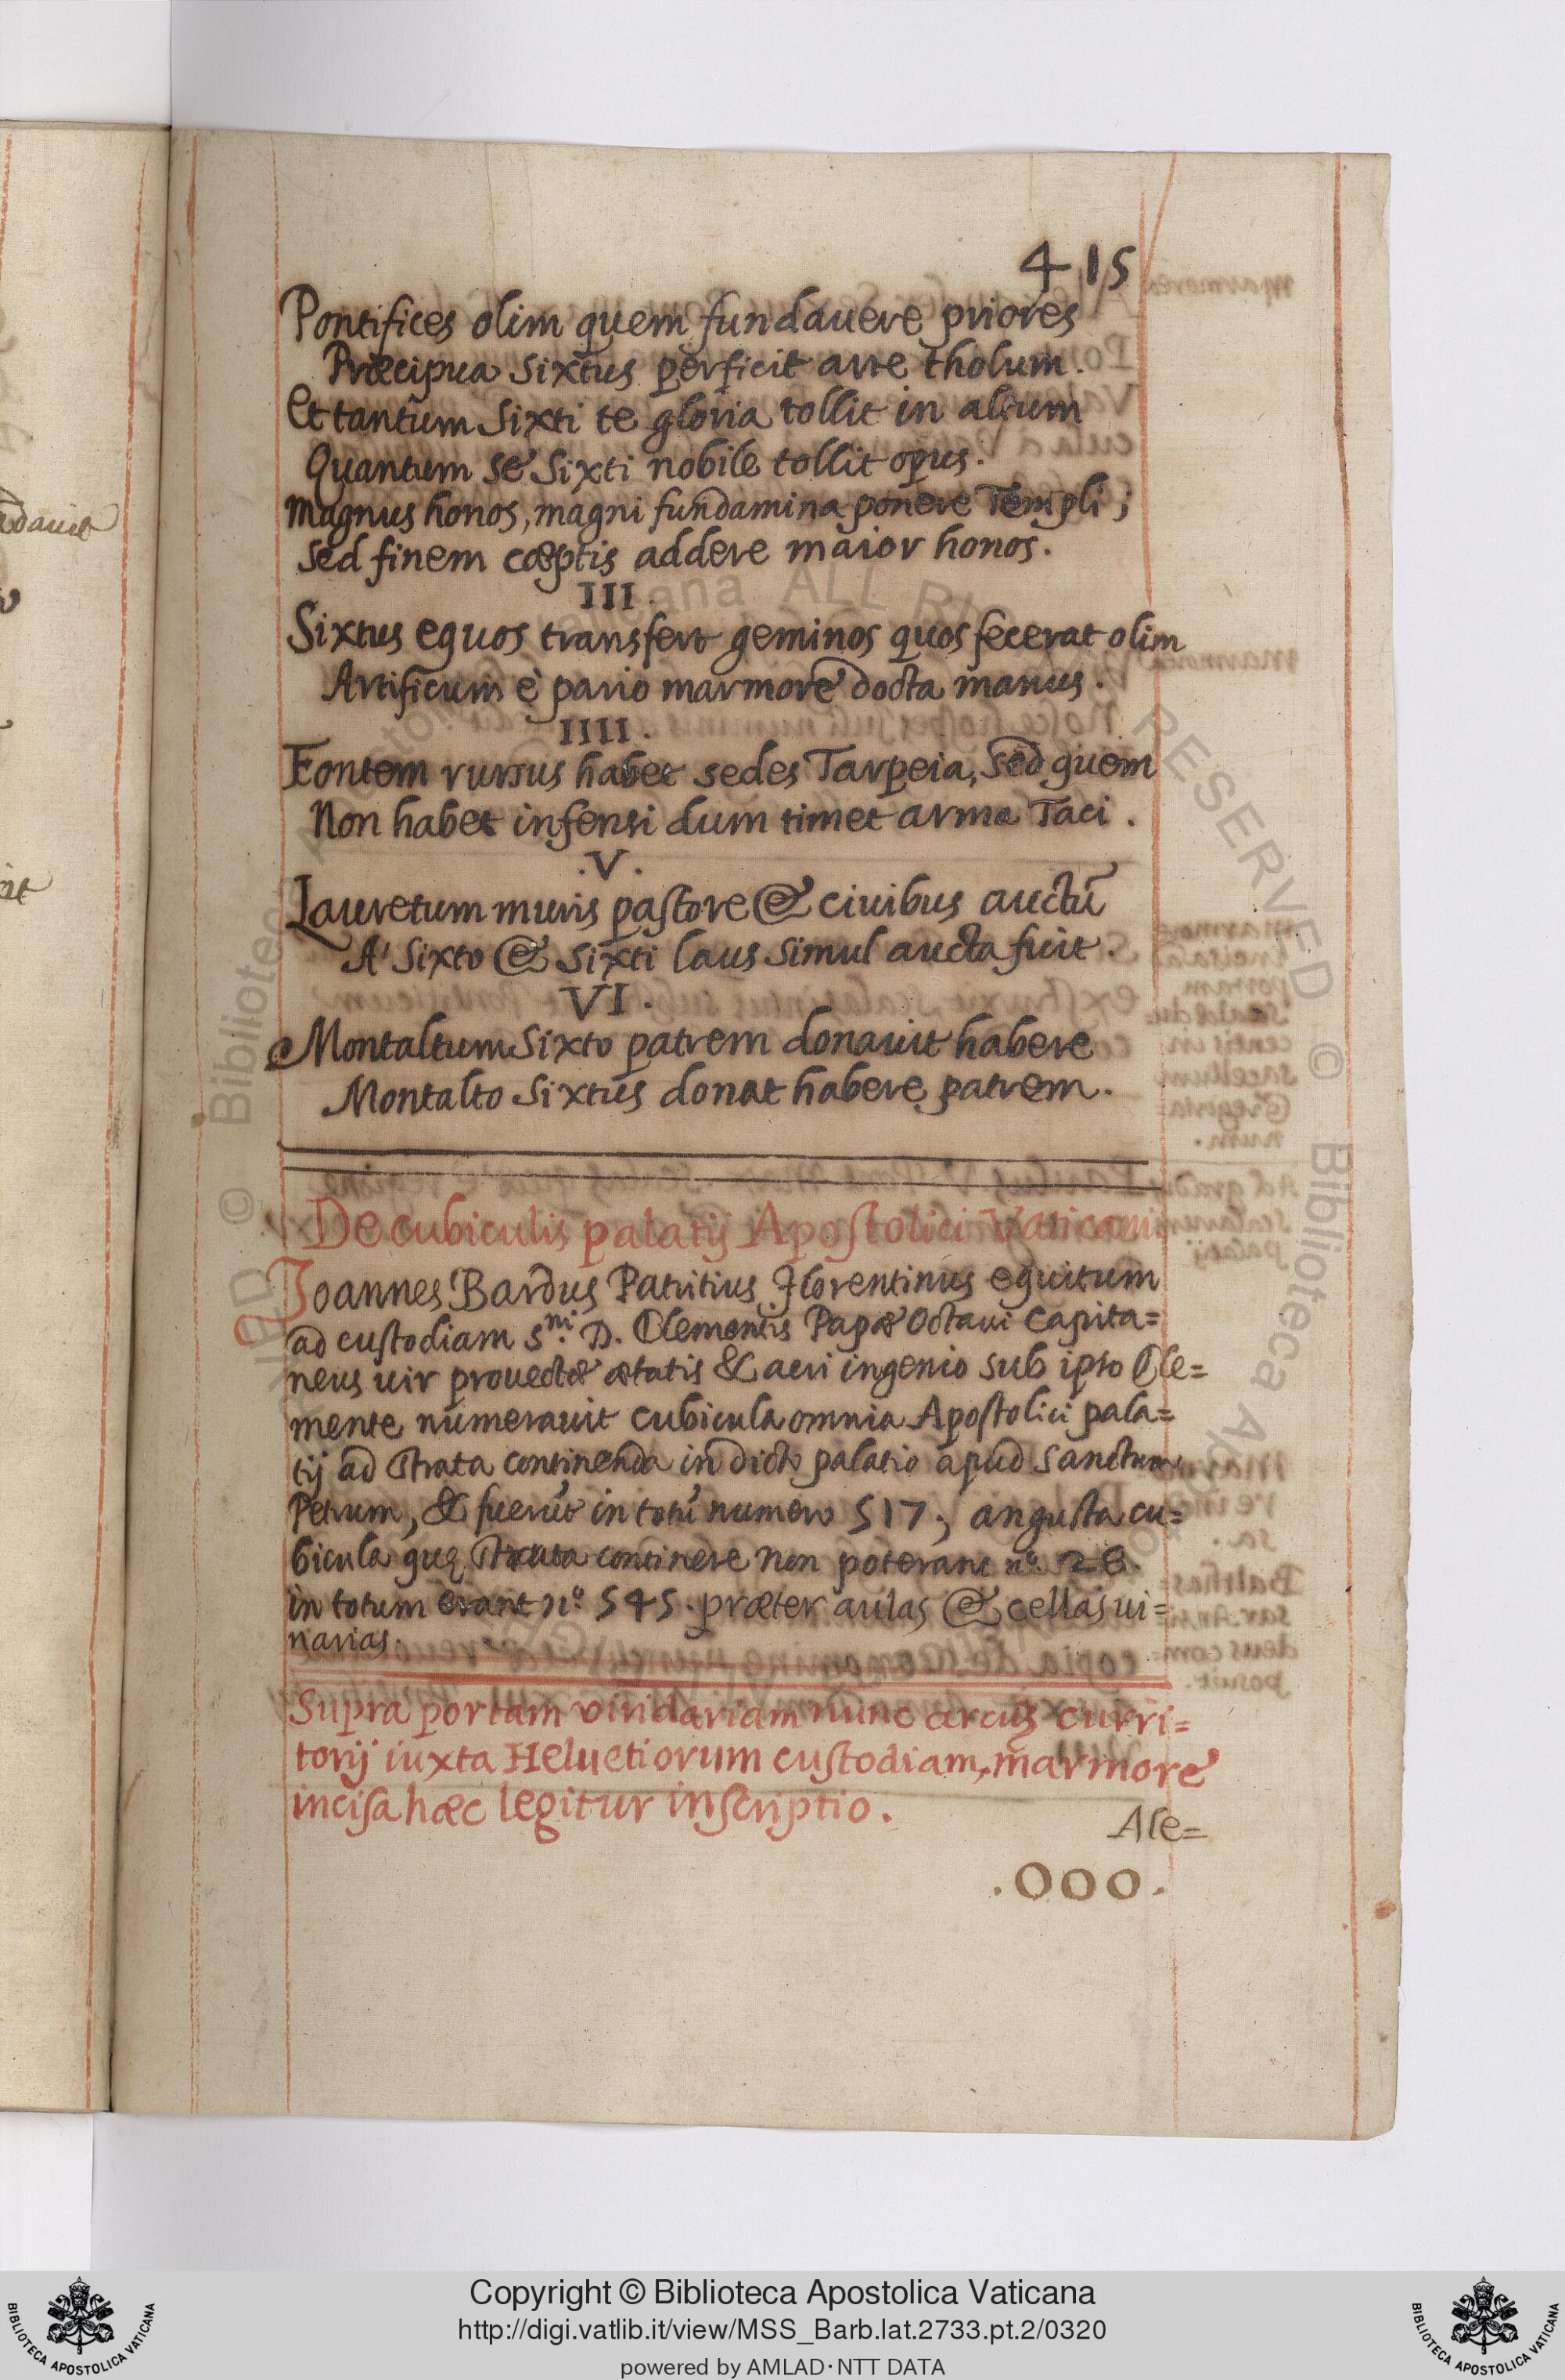 415
Pontifices olim quem fundauere priores
Præcipua Sixtus perficit arte tholum.
Et tantum Sixti te gloria tollit in altum
Quantum se Sixti nobile tollit opus.
Magnus honos, magni fundamina ponere Templi;
Sed finem cœptis addere maior honos.
III.
Sixtus equos transfert geminos quos fecerat olim
Artificum è pario marmore docta manus.
IIII.
Fontem rursus habet sedes Tarpeia, sed quem
Non habet infensi dum timet arma Taci.
.V.
Lauretum muris pastore & ciuibus auctũ
A' Sixto & Sixti laus simul aucta fuit.
VI.
Montaltum Sixto patrem donauit habere
Montalto Sixtus donat habere patrem.
De cubiculis palatij Apostolici Vaticani
Ioannes Bardus Patritius Florentinus equitum
ad custodiam S.mi D. Clementis Papæ Octaui Capita=
neus uir prouectæ ætatis & acri ingenio sub ipso Cle=
mente numerauit cubicula omnia Apostolici pala=
tij ad strata continenda in dicto palatio apud Sanctum
Petrum, & fuerũt in totũ numero 517; angusta cu=
bicula quę strata continere non poterant nº. 28.
in totum erant nº. 545. præter aulas & cellas ui=
narias.
Supra portam viridariam nunc arcus curri=
torij iuxta Heluetiorum custodiam, marmore
incisa hæc legitur inscriptio.
Ale=
.000.
dauit
Copyright © Biblioteca Apostolica Vaticana
http://digi.vatlib.it/view/MSS_Barb.lat.2733.pt.2/0320
powered by AMLAD·NTT DATA
BIBLIOTECA APOSTOLICA VATICANA
BIBLIOTECA APOSTOLICA VATICANA